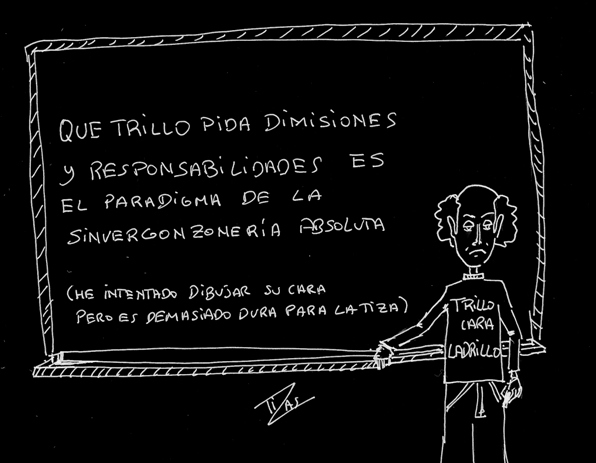 QUE TRILLO PIDA DIMISIONES
Y RESPONSABILIDADES ES
EL PARADIGMA DE LA
SINVERGONZONERÍA ABSOLUTA
(HE INTENTADO DIBUJAR SU CARA
PERO ES DEMASIADO DURA PARA LA TIZA)
TRILLO
CARA
LADRILLO
TIZAS